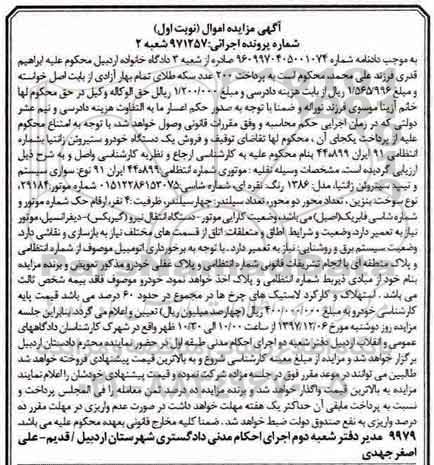 آگهی مزایده اموال (نوبت اول)
شماره پرونده اجرائی: ۹۷۱۲۵۷ شعبه ۲
به موجب دادنامه شماره ۹۶۰۹۹۷۰۴۰۵۰۰۱۰۷۴ صادره از شعبه ۳ دادگاه خانواده اردبیل محکوم علیه ابراهیم
قدری فرزند علی محمد محکوم است به پرداخت ۲۰۰ عدد سکه طلای تمام بهار آزادی از بابت اصل خواسته
و مبلغ ۱/۵۶۵/۹۹۶ ریال از بابت هزینه دادرسی و مبلغ ۱/۲۰۰/۰۰۰ ریال حق الوکاله وکیل در حق محکوم لها
خانم آزیتا موسوی فرزند نوراله و ضمنا با توجه به صدور حکم اعسار ما به التفاوت هزینه دادرسی و نیم عشر
دولتی که در زمان اجرای حکم محاسبه و وفق مقررات قانونی وصول خواهد شد، با توجه به امتناع محکوم
علیه از پرداخت یکجای آن، محکوم لها تقاضای توقیف و فروش یک دستگاه خودرو ستیروئن زانتیا بشماره
انتظامی ۹۱ ایران ۸۹۹ه۴۴ بنام محکوم علیه به کارشناسی ارجاع و نظریه کارشناسی واصل و به شرح ذیل
ارزیابی گردیده است. مشخصات وسیله نقلیه: موتوری شماره انتظامی ۸۹۹ه۴۴ ایران ۹۱ نوع: سواری سیستم
و تیپ: سیتروئن زانتیا، مدل: ۱۳۸۶ رنگ: نقره ای، شماره شاسی: ۰۱۵۱۲۲۸۶۱۵۳۰۷۵ شماره موتور: ۲۹۱۸۴،
نوع سوخت بنزین، تعداد محور دو محور، تعداد سیلندر: چهار سیلندر، ظرفیت: ۴ نفر، ارقام حک شماره موتور و
شماره شاسی فابریک (اصل) می باشد، وضعیت کارایی موتور-دستگاه انتقال نیرو (گیربکس)-دیفرانسیل، موتور
نیاز به تعمیر دارد، وضعیت و شرایط اطاق و متعلقات: اتاق از قسمت های مختلف نیاز به بازسازی و نقاشی دارد.
وضعیت سیستم برق و روشنایی: نیاز به تعمیر دارد. با توجه به برخورداری اتومبیل موصوف از شماره انتظامی
و پلاک منطقه ای با انجام تشریفات قانونی شماره انتظامی و پلاک فعلی خودرو مذکور تعویض و برنده مزایده
بنام خود از مبادی ذیربط شماره انتظامی و پلاک اخذ خواهد نمود. خودرو موصوف فاقد بیمه شخص ثالث
می باشد. استهلاک و کارکرد لاستیک های چرخ ها در مجموع در حدود ۶۰ درصد می باشد قیمت پایه
کارشناسی خودرو به مبلغ ۴۰۰/۰۰۰/۰۰۰ ریال (چهارصد میلیون ریال) تعیین و اعلام می گردد، بنابراین جلسه
مزایده روز دوشنبه مورخ ۱۳۹۷/۱۲/۰۶ از ساعت ۱۰/۰۰ الی ۱۰/۳۰ ظهر واقع در شهرک کارشناسان دادگاههای
عمومی و انقلاب اردبیل دفتر شعبه دو اجرای احکام مدنی طبقه اول در حضور نماینده محترم دادستان اردبیل
برگزار خواهد شد و مزایده از مبلغ معینه کارشناسی شروع و به بالاترین قیمت پیشنهادی فروخته خواهد شد
طالبین می توانند در موعد مقرر فوق در جلسه مزاده شرکت نموده و قیمت پیشنهادی خودشان را اعلام نمایند
مزایده به بالاترین قیمت واگذار خواهد شد و برنده مزایده ده درصد ثمن معامله را فی المجلس پرداخت و
نسبت به پرداخت مابقی آن حداکثر یک هفته مهلت خواهد داشت در صورت عدم واریزی در مهلت مقرر ده
درصد واریزی به نفع صندوق دولت ضبط خواهد شد. ضمنا کلیه مخارج قانونی بعهده محکوم علیه می باشد.
۹۹۷۹ مدیر دفتر شعبه دوم اجرای احکام مدنی دادگستری شهرستان اردبیل / قدیم-علی
اصغر جهدی